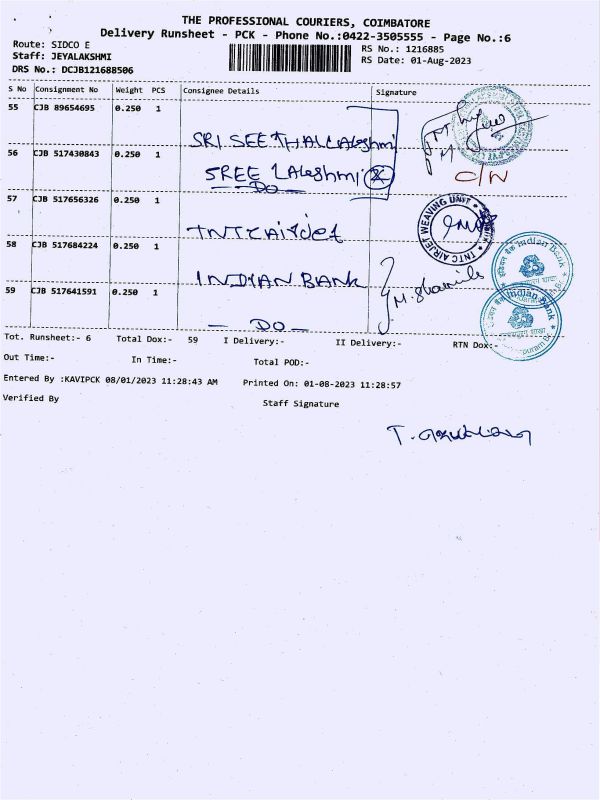 THE PROFESSIONAL COURIERS, COIMBATORE
Delivery Runsheet - PCK - Phone No.:0422-3505555 - Page No.:6
Route: SIDCO E
RS No.: 1216885
Staff: JEYALAKSHMI
RS Date: 01-Aug-2023
DRS No.: DCJB121688506
S No Consignment No Weight PCS Consignee Details Signature
55 CJB 89654695 0.250 1
SRI SEETHALLAkshmi
56 CJB 517430843 0.250 1
SREE LAkshmi
C/N
DO
57 CJB 517656326 0.250 1
TNTC AIRJET WEAVING UNIT
TNTCAirJet
58 CJB 517684224 0.250 1
Indian Bank
INDIAN BANK
59 CJB 517641591 0.250 1
Indian Bank
- DO -
Tot. Runsheet:- 6 Total Dox:- 59 I Delivery:- II Delivery:- RTN Dox:-
Out Time:- In Time:- Total POD:-
Entered By :KAVIPCK 08/01/2023 11:28:43 AM Printed On: 01-08-2023 11:28:57
Verified By Staff Signature